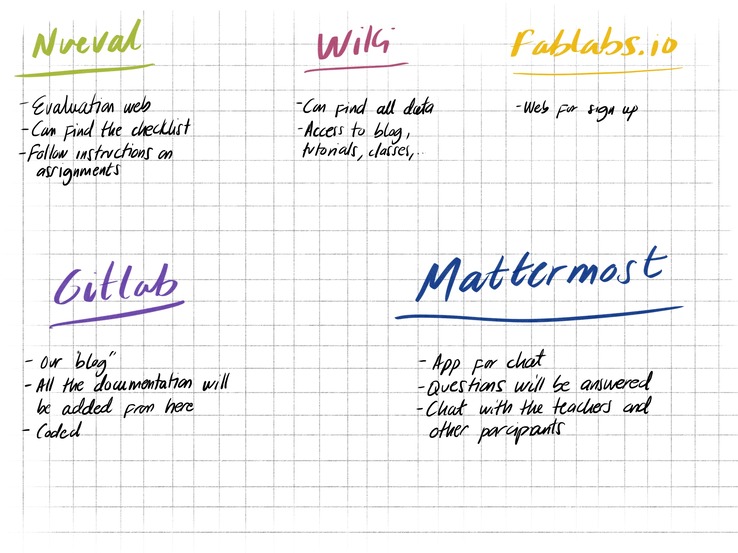 Nueval
- Evaluation web
- Can find the checklist
- Follow instructions on
assignments
Wiki
- Can find all data
- Access to blog,
tutorials, classes,...
Fablabs.io
- Web for sign up
Gitlab
- Our "blog"
- All the documentation will
be added from here
- Coded
Mattermost
- App for chat
- Questions will be answered
- Chat with the teachers and
other parcipants